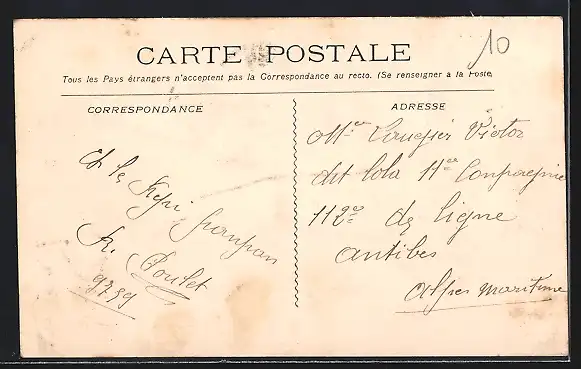 10
CARTE POSTALE
Tous les Pays étrangers n'acceptent pas la Correspondance au recto. (Se renseigner à la Poste
CORRESPONDANCE
ADRESSE
Victor
dit Lola 11e Compagnie
112e de Ligne
antibes
alpes maritime
et le Kepi
R. Poulet